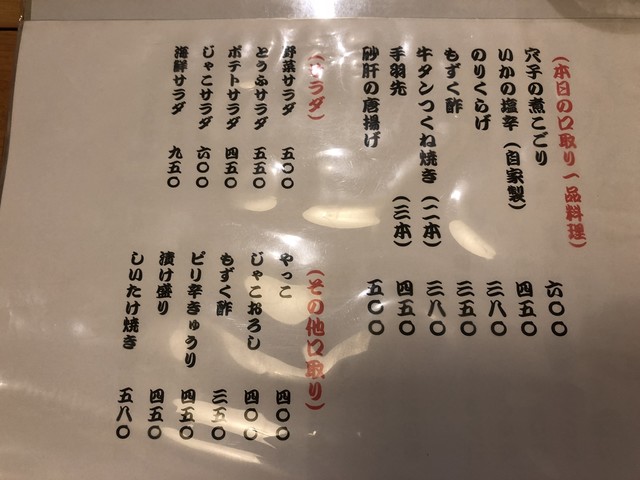 (本日の口取り一品料理)
穴子の煮こごり 六〇〇
いかの塩辛(自家製) 四五〇
のりくらげ 三八〇
もずく酢 三五〇
牛タンつくね焼き(二本) 三八〇
手羽先(三本) 四五〇
砂肝の唐揚げ 五〇〇
(サラダ)
野菜サラダ 五〇〇
とうふサラダ 五五〇
ポテトサラダ 四五〇
じゃこサラダ 六〇〇
海鮮サラダ 九五〇
(その他口取り)
やっこ 四〇〇
じゃこおろし 四〇〇
もずく酢 三五〇
ピリ辛きゅうり 四五〇
漬け盛り 四五〇
しいたけ焼き 五八〇